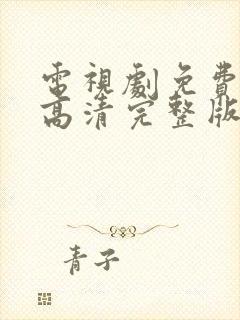 電視劇免費
高清完整版
青子